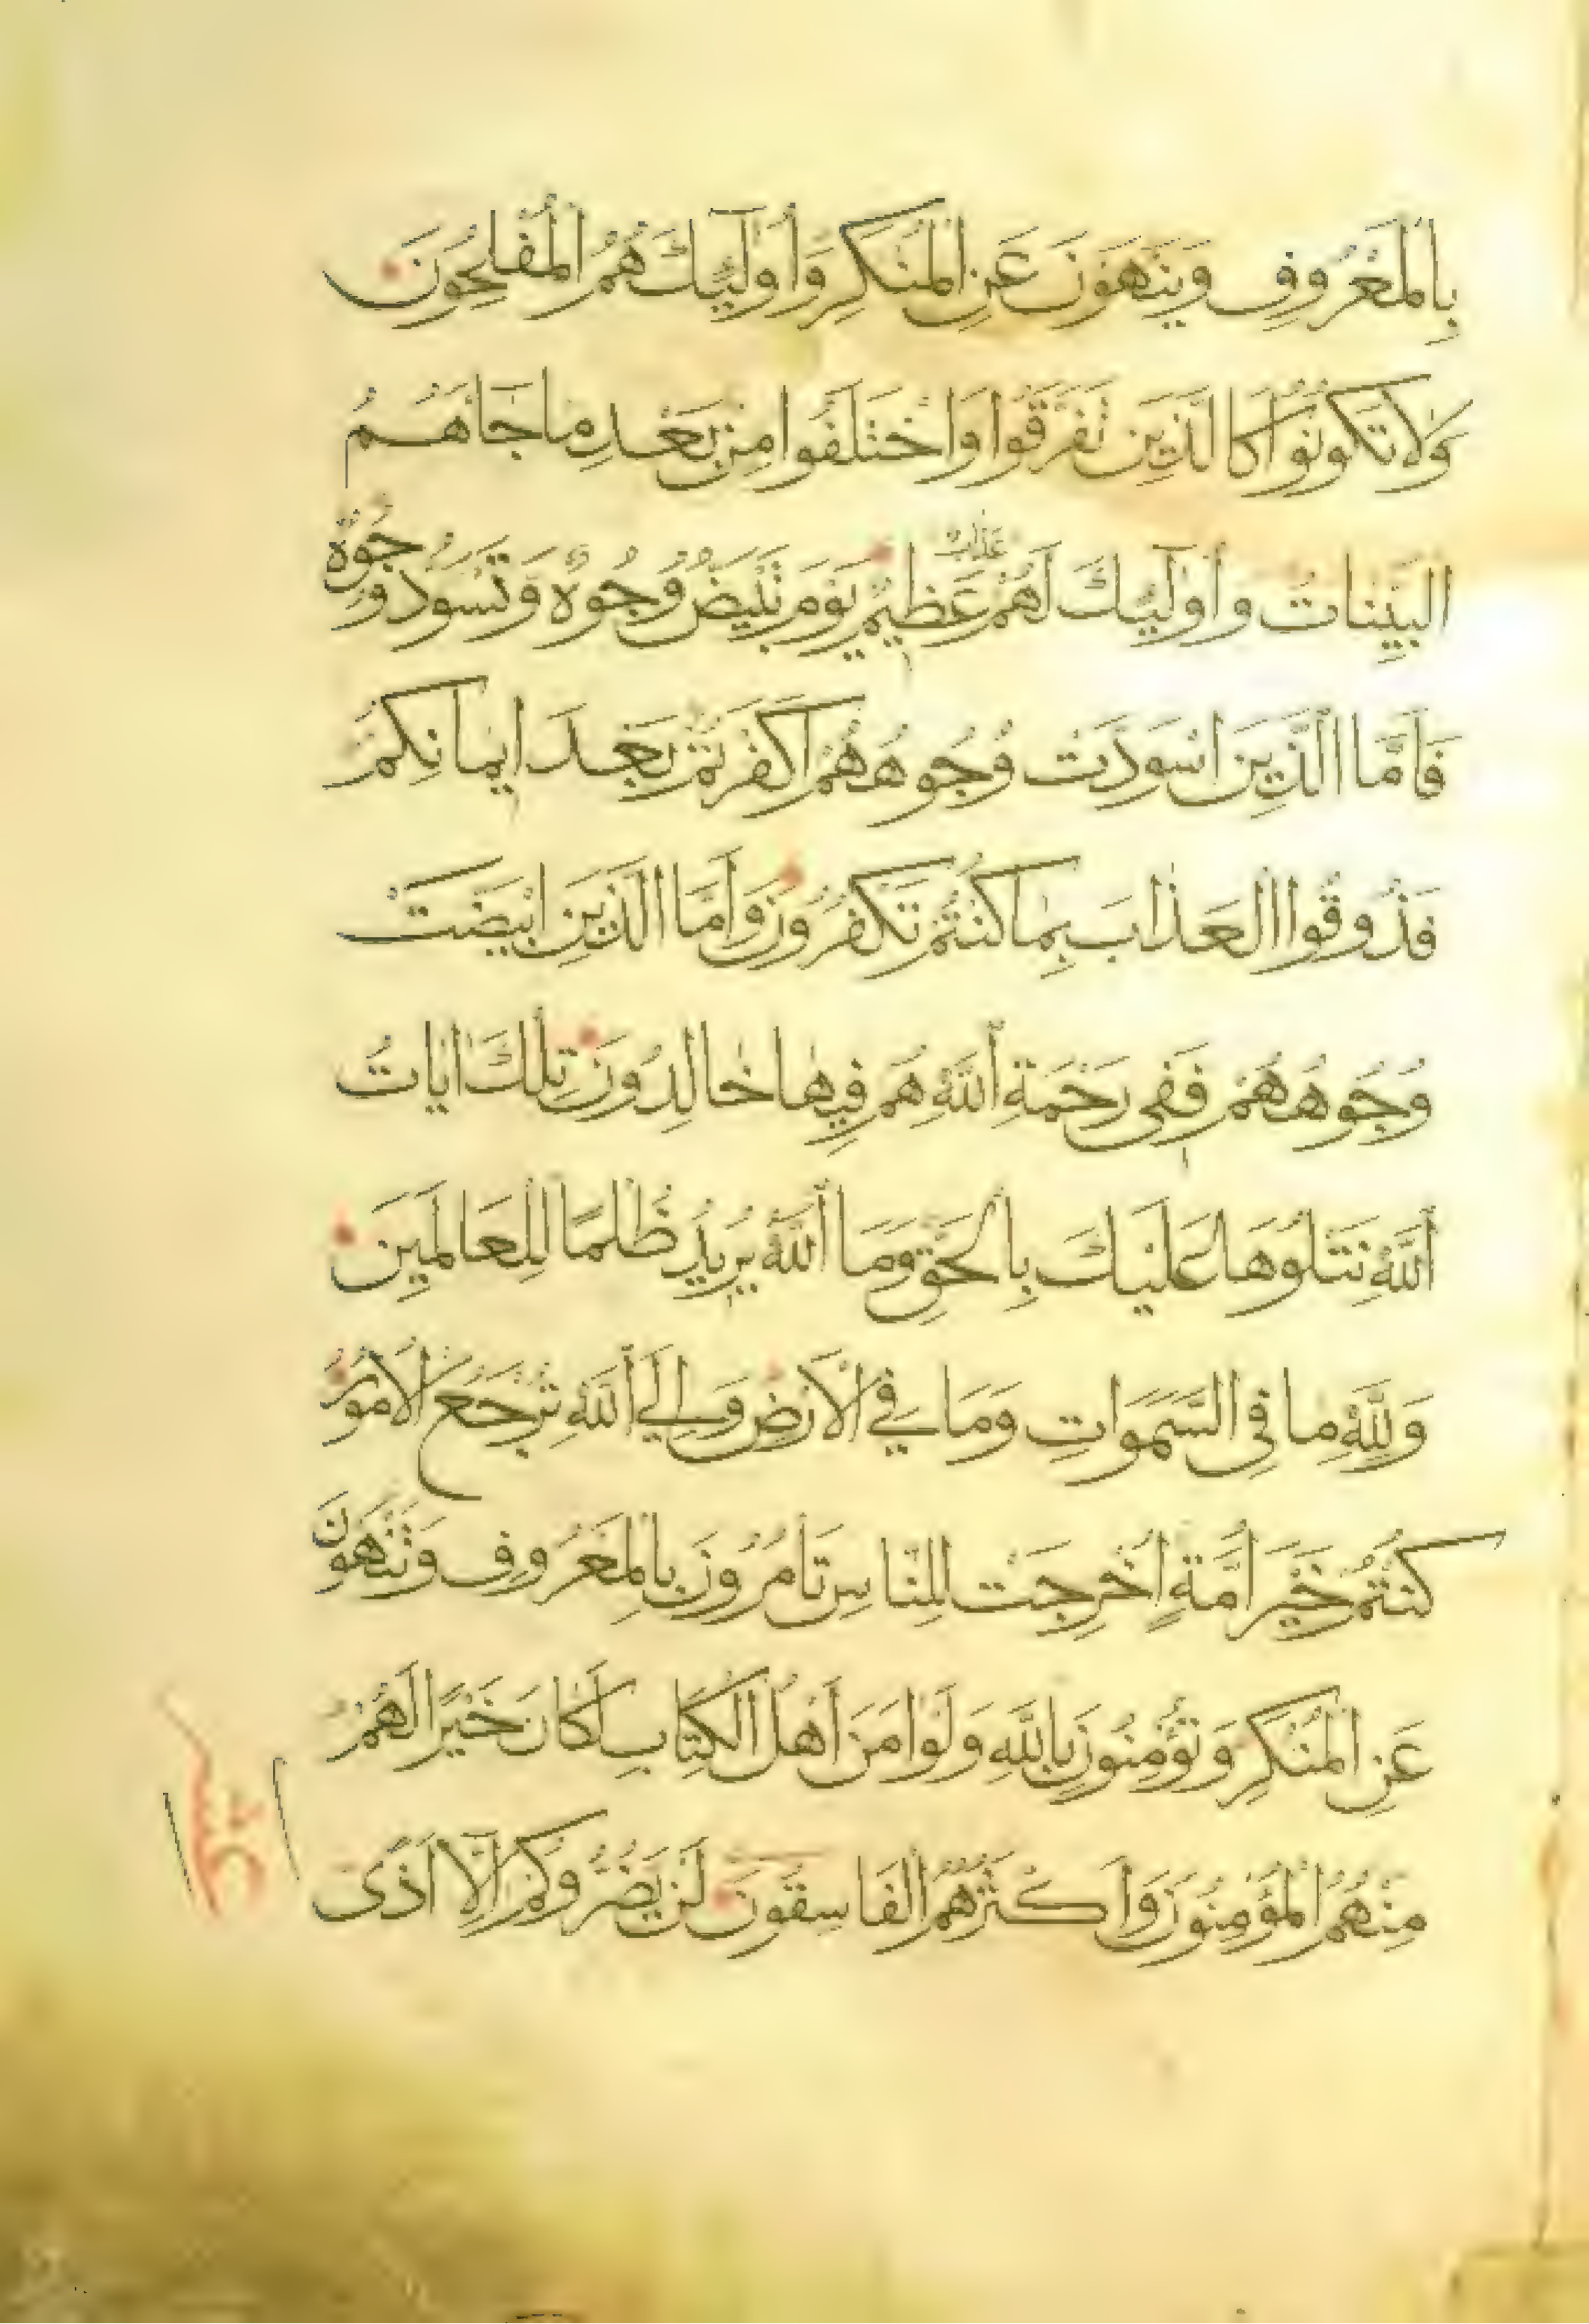 بِالمَعْرُوفِ وَيَنْهَوْنَ عَنِ المُنْكَرِ وَأُولَٰئِكَ هُمُ المُفْلِحُونَ
وَلَا تَكُونُوا كَالَّذِينَ تَفَرَّقُوا وَاخْتَلَفُوا مِنْ بَعْدِ مَا جَاهُمُ
البَيِّنَاتُ وَأُولَٰئِكَ لَهُمْ عَذَابٌ عَظِيمٌ يَوْمَ تَبْيَضُّ وُجُوهٌ وَتَسْوَدُّ وُجُوهٌ
فَأَمَّا الَّذِينَ اسْوَدَّتْ وُجُوهُهُمْ أَكَفَرْتُمْ بَعْدَ إِيمَانِكُمْ
فَذُوقُوا العَذَابَ بِمَا كُنْتُمْ تَكْفُرُونَ وَأَمَّا الَّذِينَ ابْيَضَّتْ
وُجُوهُهُمْ فَفِي رَحْمَةِ اللَّهِ هُمْ فِيهَا خَالِدُونَ تِلْكَ آيَاتُ
اللَّهِ نَتْلُوهَا عَلَيْكَ بِالحَقِّ وَمَا اللَّهُ يُرِيدُ ظُلْمًا لِلْعَالَمِينَ
وَلِلَّهِ مَا فِي السَّمَوَاتِ وَمَا فِي الأَرْضِ وَإِلَى اللَّهِ تُرْجَعُ الأُمُورُ
كُنْتُمْ خَيْرَ أُمَّةٍ أُخْرِجَتْ لِلنَّاسِ تَأْمُرُونَ بِالمَعْرُوفِ وَتَنْهَوْنَ
عَنِ المُنْكَرِ وَتُؤْمِنُونَ بِاللَّهِ وَلَوْ آمَنَ أَهْلُ الكِتَابِ لَكَانَ خَيْرًا لَهُمْ
مِنْهُمُ المُؤْمِنُونَ وَأَكْثَرُهُمُ الفَاسِقُونَ لَنْ يَضُرُّوكُمْ إِلَّا أَذًى